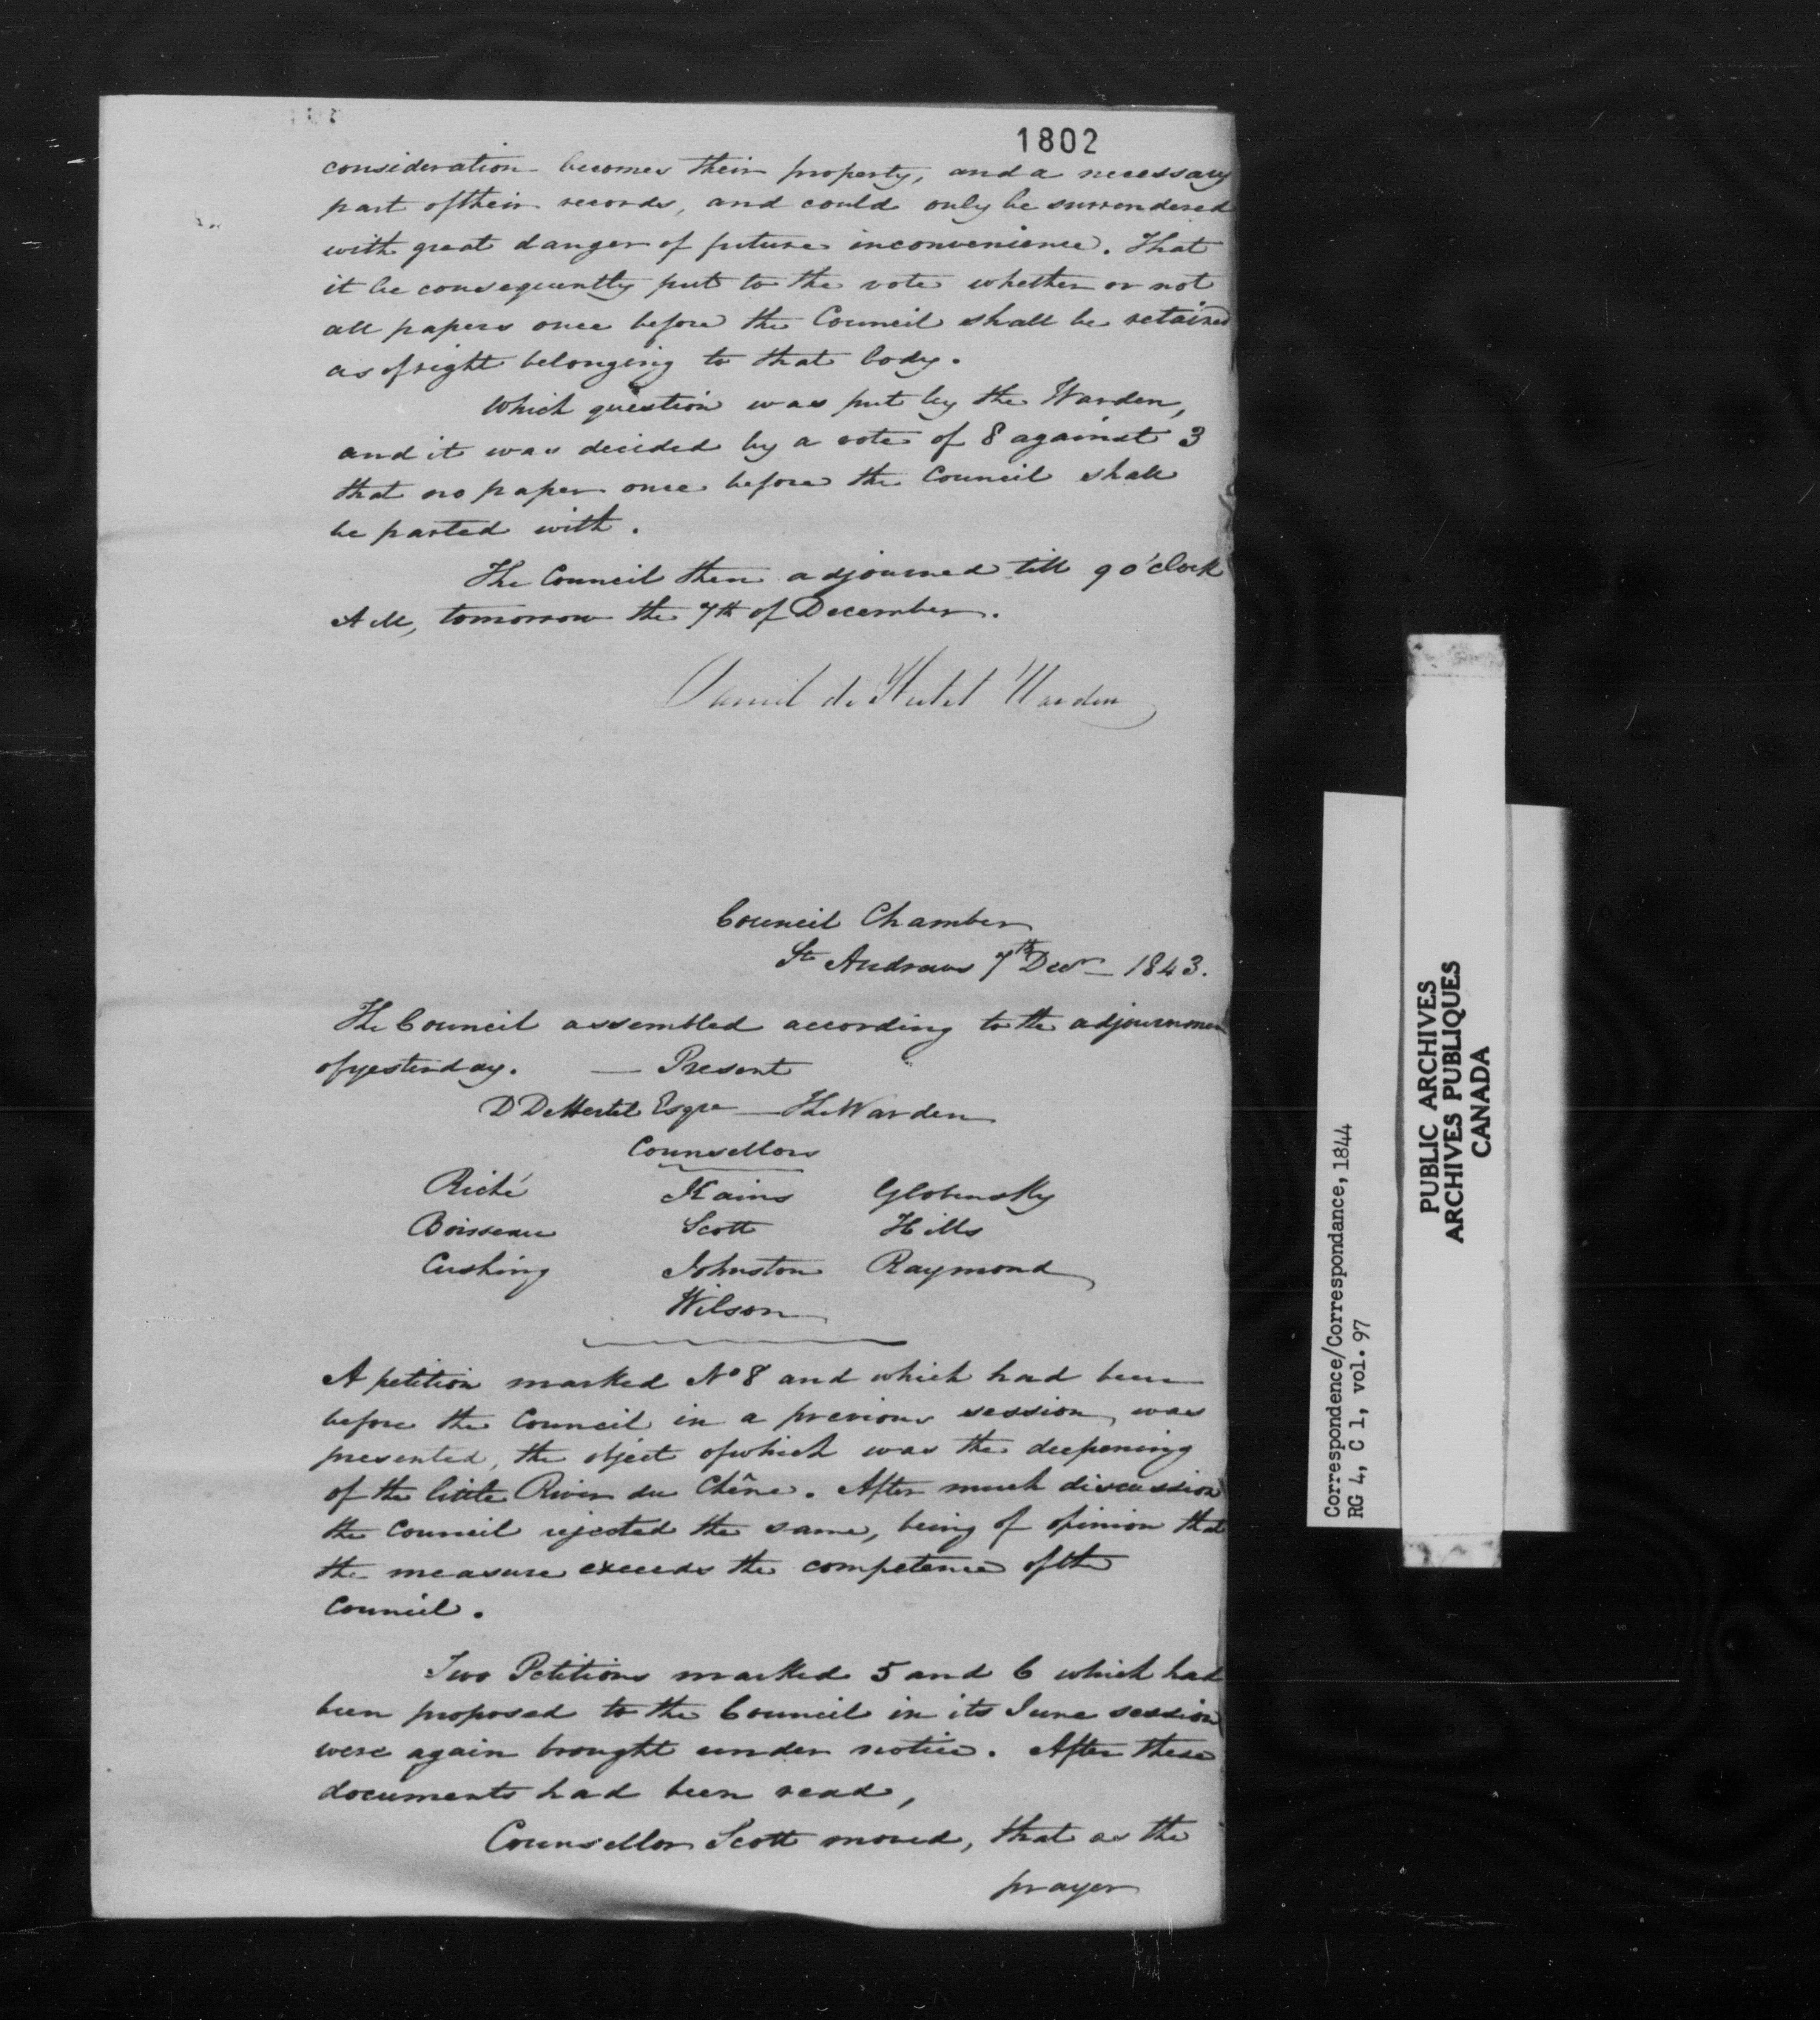 1802
consideration becomes their property, and a necessary
part of their records, and could only be surrendered
with great danger of future inconvenience. That
it be consequently put to the vote whether or not
all papers once before the Council shall be retained
as of right belonging to that body.
Which question was put by the Warden,
and it was decided by a vote of 8 against 3
that no paper once before the Council shall
be parted with.
The Council then adjourned till 9 o'clock
AM, tomorrow the 7th of December.
Daniel de Hertel Warden
Council Chamber
St Andrews 7th Decr 1843.
The Council assembled according to the adjournmen
of yesterday. — Present
D De Hertel Esqre — The Warden
Counsellors
Riché Kains Globensky
Boisseau Scott Hills
Cushing Johnston Raymond
Wilson
A petition marked No 8 and which had been
before the Council in a previous session, was
presented, the object of which was the deepening
of the little River du Chêne. After much discussion
the Council rejected the same, being of opinion that
the measure exceeds the competence of the
Council.
Two Petitions marked 5 and 6 which had
been proposed to the Council in its June session
were again brought under notice. After these
documents had been read,
Counsellor Scott moved, that as the
prayer
Correspondence/Correspondance, 1844
RG 4, C 1, vol. 97
PUBLIC ARCHIVES
ARCHIVES PUBLIQUES
CANADA